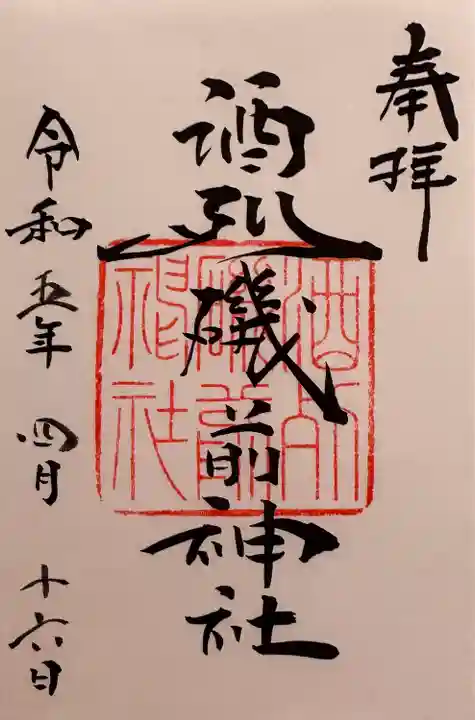 奉拝
酒列磯前神社
酒列磯前神社
令和五年四月十六日